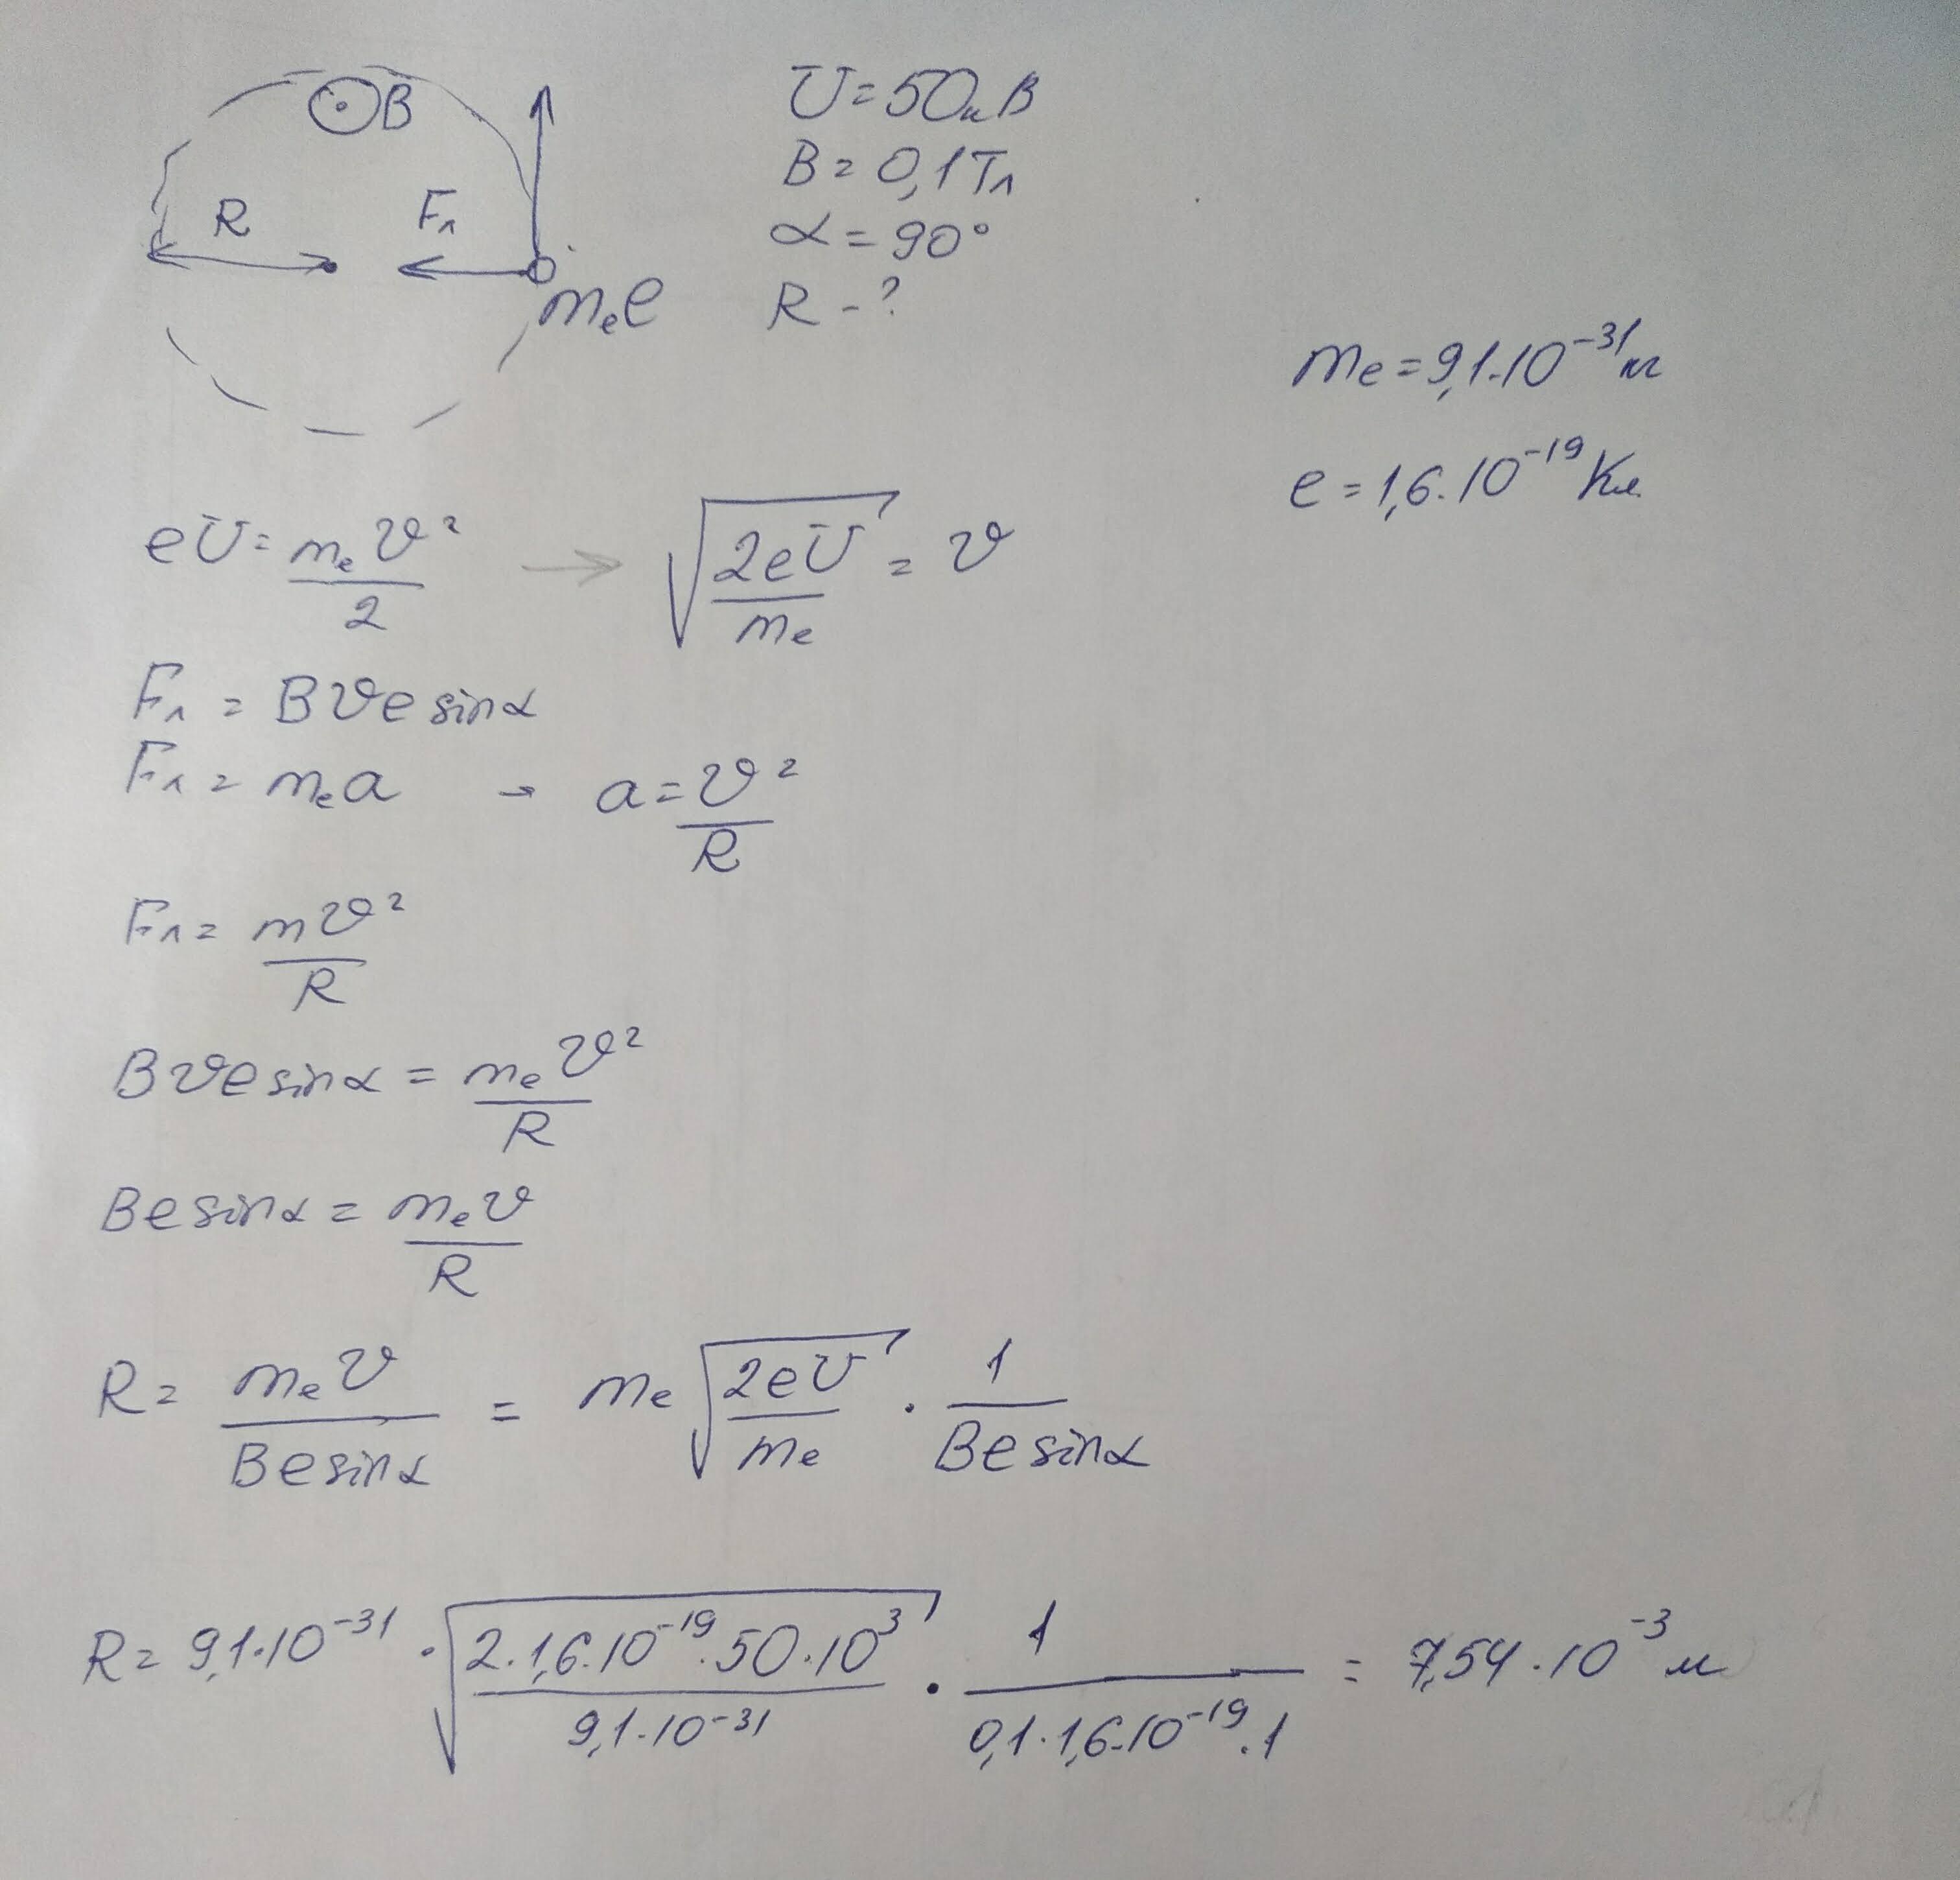 B
R
Fл
mₑe
U=50кВ
B=0,1Тл
α=90°
R-?
mₑ=9,1·10⁻³¹кг
e=1,6·10⁻¹⁹Кл
eU=mₑv²/2 → √(2eU/mₑ)=v
Fл=Bvesinα
Fл=mₑa → a=v²/R
Fл=mv²/R
Bvesinα=mₑv²/R
Besinα=mₑv/R
R=mₑv/Besinα=mₑ√(2eU/mₑ)·1/Besinα
R=9,1·10⁻³¹·√(2·1,6·10⁻¹⁹·50·10³/9,1·10⁻³¹)·1/0,1·1,6·10⁻¹⁹·1=7,54·10⁻³м